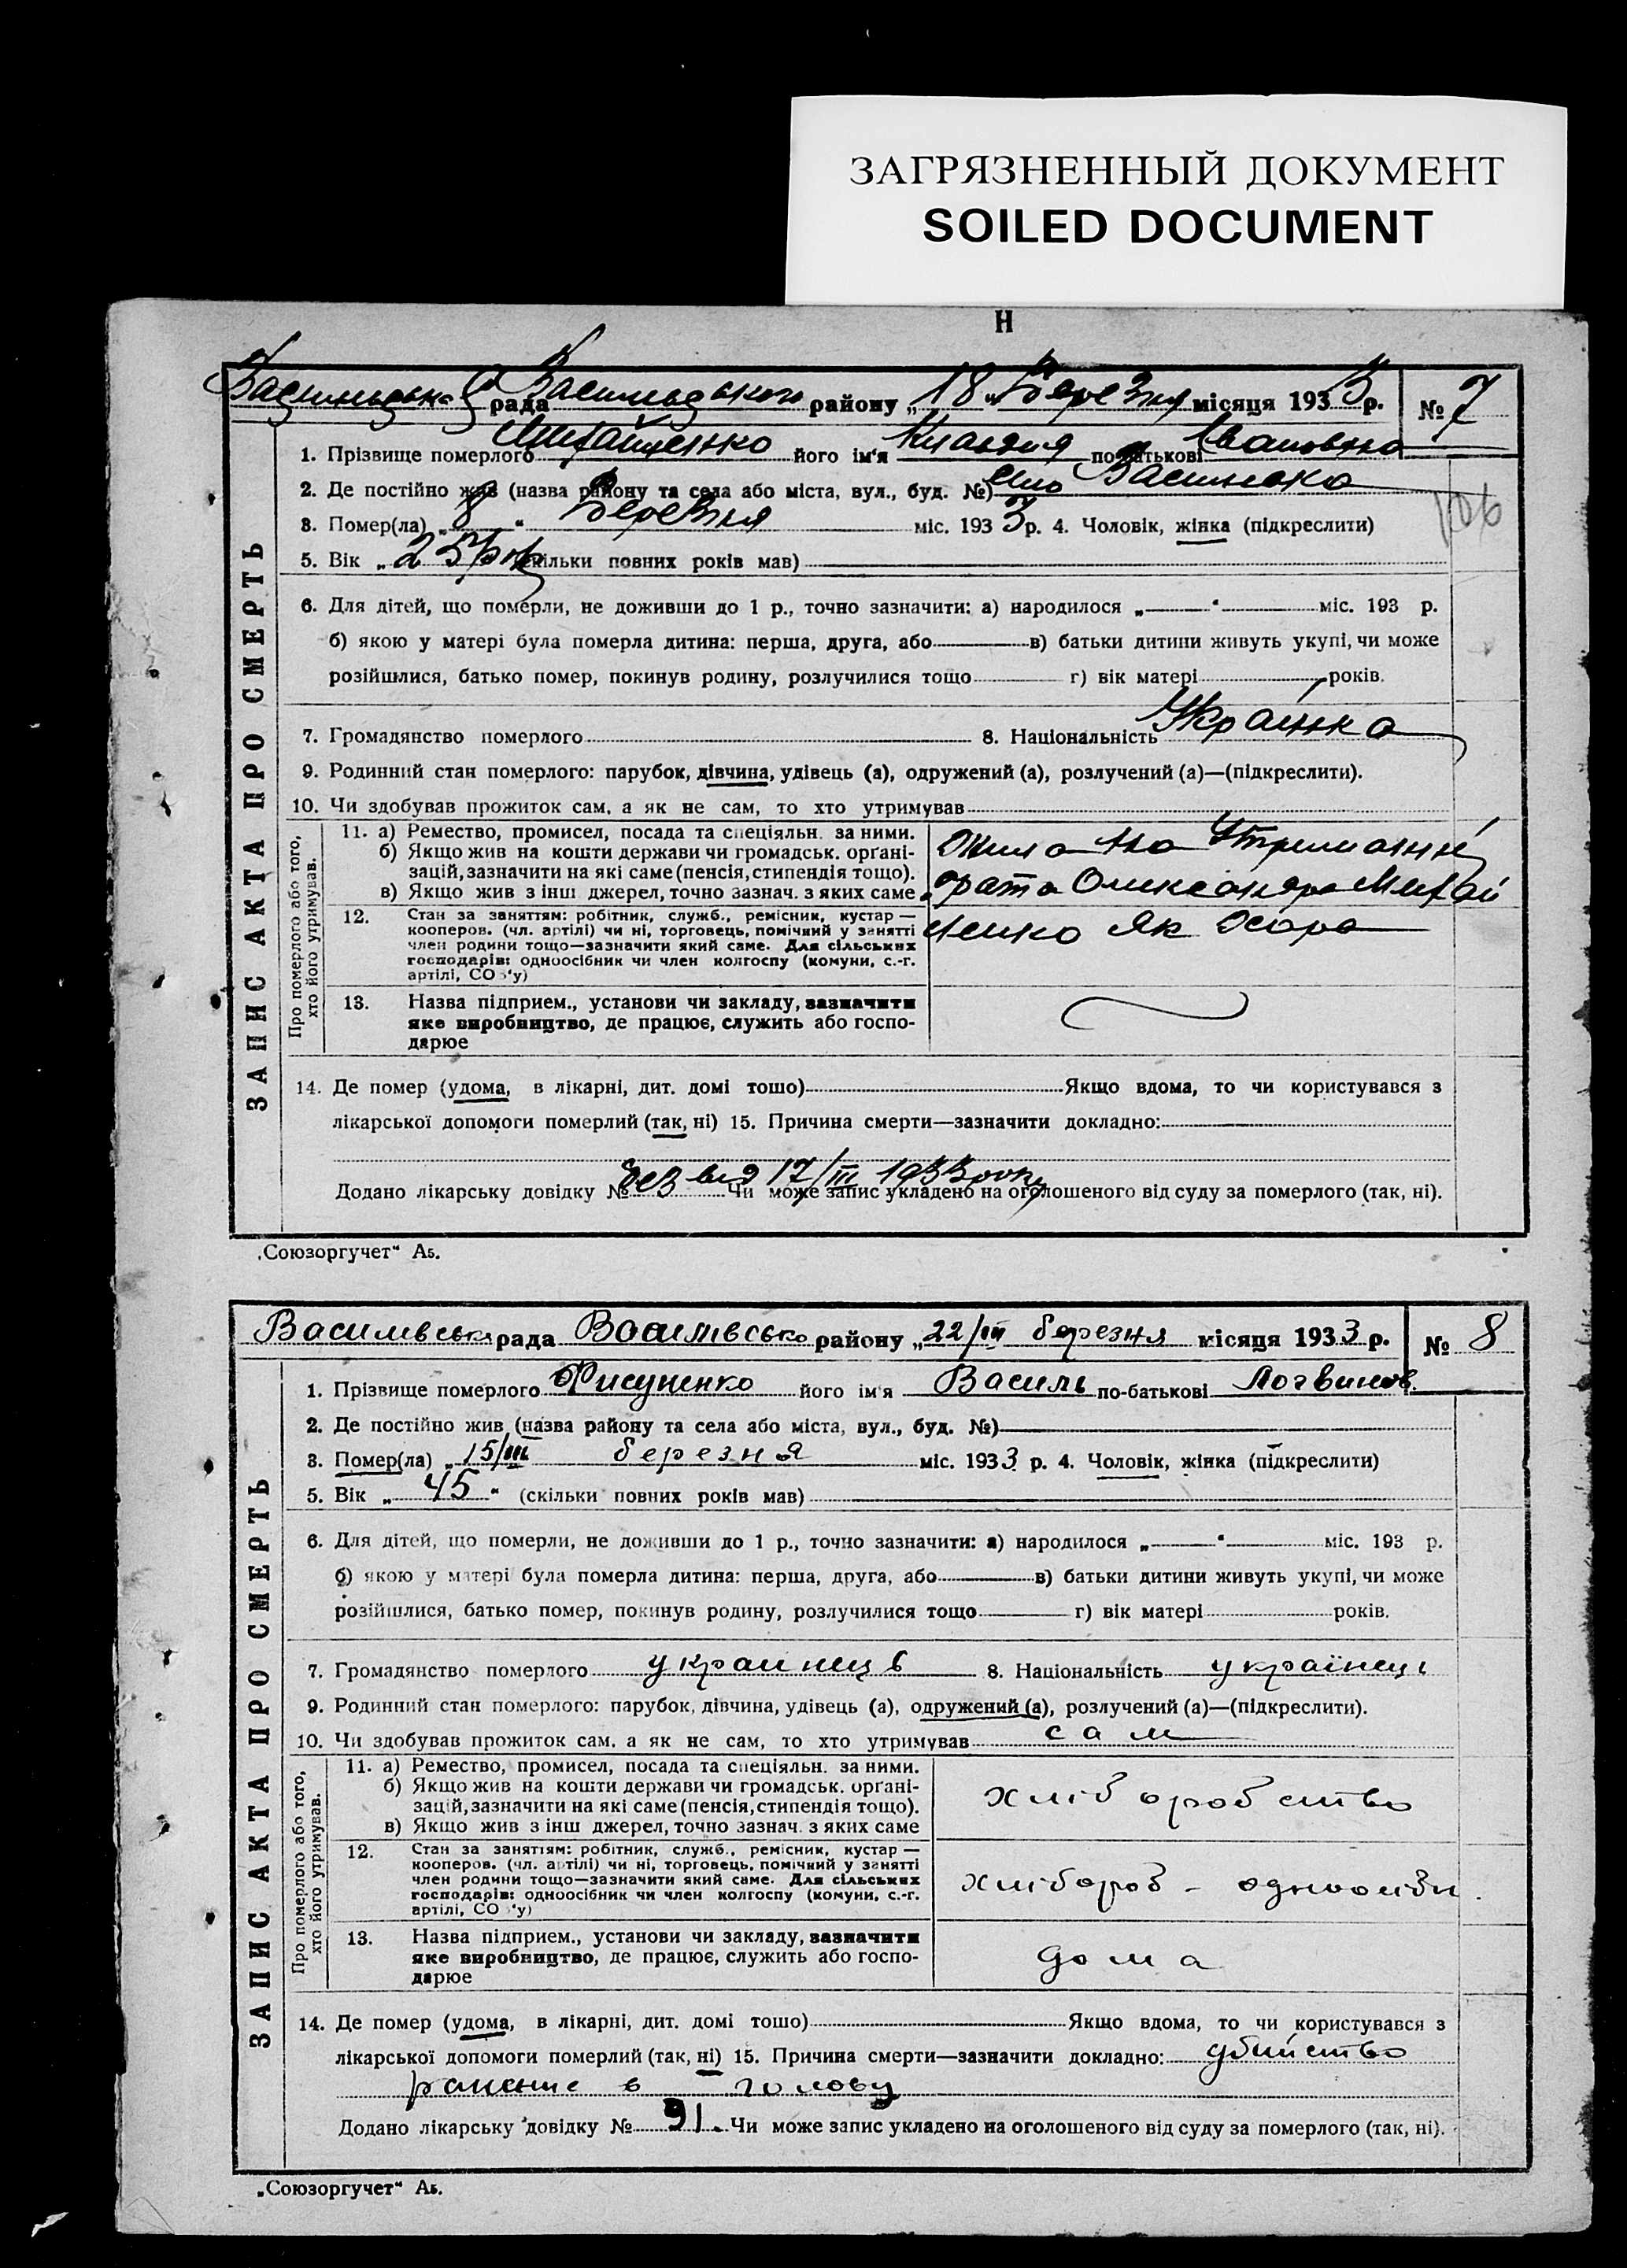 ЗАГРЯЗНЕННЫЙ ДОКУМЕНТ
SOILED DOCUMENT
Н
рада Васильвського району „18“ Березня місяця 1933 р. № 7
ЗАПИС АКТА ПРО СМЕРТЬ
1. Прізвище померлого його ім'я Клавдия по-батькові Івановна
2. Де постійно жив (назва району та села або міста, вул., буд. №) село
3. Помер(ла) „8“ Березня міс. 1933 р. 4. Чоловік, жінка (підкреслити)
5. Вік „25 (скільки повних років мав)
6. Для дітей, що померли, не доживши до 1 р., точно зазначити: а) народилося „ “ міс. 193 р.
б) якою у матері була померла дитина: перша, друга, або в) батьки дитини живуть укупі, чи може
розійшлися, батько помер, покинув родину, розлучилися тощо г) вік матері років.
7. Громадянство померлого 8. Національність Українка
9. Родинний стан померлого: парубок, дівчина, удівець (а), одружений (а), розлучений (а)—(підкреслити).
10. Чи здобував прожиток сам, а як не сам, то хто утримував
Про померлого або того,
хто його утримував.
11. а) Ремество, промисел, посада та спеціяльн. за ними.
б) Якщо жив на кошти держави чи громадськ. орґані-
зацій, зазначити на які саме (пенсія, стипендія тощо).
в) Якщо жив з інш джерел, точно зазнач. з яких саме
Жила на Утриманні
брата Олександра
12. Стан за заняттям: робітник, служб., ремісник, кустар —
кооперов. (чл. артілі) чи ні, торговець, помічний у занятті
член родини тощо—зазначити який саме. Для сільських
господарів: одноосібник чи член колгоспу (комуни, с.-г.
артілі, СО у)
ченко як
13. Назва підприєм., установи чи закладу, зазначити
яке виробництво, де працює, служить або госпо-
дарює
14. Де помер (удома, в лікарні, дит. домі тошо) Якщо вдома, то чи користувався з
лікарської допомоги померлий (так, ні) 15. Причина смерти—зазначити докладно:
Додано лікарську довідку № без від 17/III 1933 року Чи може запис укладено на оголошеного від суду за померлого (так, ні).
„Союзоргучет“ А5.
Василівська рада Василівсько району „22/III березня місяця 1933 р. № 8
ЗАПИС АКТА ПРО СМЕРТЬ
1. Прізвище померлого Фисуненко його ім'я Василь по-батькові Логвинов.
2. Де постійно жив (назва району та села або міста, вул., буд. №)
3. Помер(ла) „15/III березня міс. 1933 р. 4. Чоловік, жінка (підкреслити)
5. Вік „45“ (скільки повних років мав)
6. Для дітей, що померли, не доживши до 1 р., точно зазначити: а) народилося „ “ міс. 193 р.
б) якою у матері була померла дитина: перша, друга, або в) батьки дитини живуть укупі, чи може
розійшлися, батько помер, покинув родину, розлучилися тощо г) вік матері років.
7. Громадянство померлого украинець 8. Національність українець
9. Родинний стан померлого: парубок, дівчина, удівець (а), одружений (а), розлучений (а)—(підкреслити).
10. Чи здобував прожиток сам, а як не сам, то хто утримував сам
Про померлого або того,
хто його утримував.
11. а) Ремество, промисел, посада та спеціяльн. за ними.
б) Якщо жив на кошти держави чи громадськ. орґані-
зацій, зазначити на які саме (пенсія, стипендія тощо).
в) Якщо жив з інш джерел, точно зазнач. з яких саме
хліборобство
12. Стан за заняттям: робітник, служб., ремісник, кустар —
кооперов. (чл. артілі) чи ні, торговець, помічний у занятті
член родини тощо—зазначити який саме. Для сільських
господарів: одноосібник чи член колгоспу (комуни, с.-г.
артілі, СО у)
хлібороб - одноосібн.
13. Назва підприєм., установи чи закладу, зазначити
яке виробництво, де працює, служить або госпо-
дарює
дома
14. Де помер (удома, в лікарні, дит. домі тошо) Якщо вдома, то чи користувався з
лікарської допомоги померлий (так, ні) 15. Причина смерти—зазначити докладно: убийство
ранение в голову
Додано лікарську довідку № 91. Чи може запис укладено на оголошеного від суду за померлого (так, ні).
„Союзоргучет“ А5.